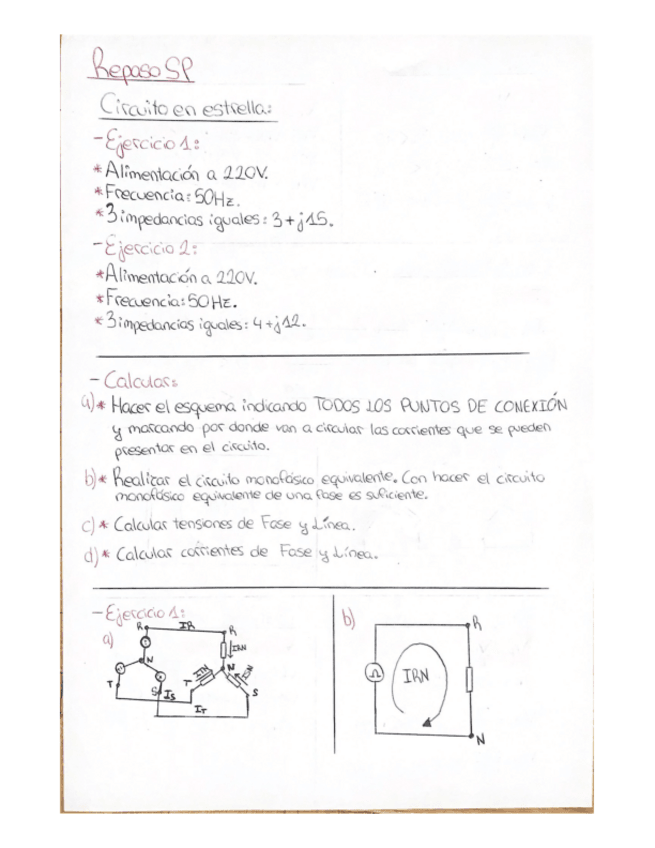 Repaso SP
Circuito en estrella:
-Ejercicio 1:
*Alimentación a 220V.
*Frecuencia: 50Hz.
*3 impedancias iguales: 3+j15.
-Ejercicio 2:
*Alimentación a 220V.
*Frecuencia: 50Hz.
*3 impedancias iguales: 4+j12.
- Calcular:
a)* Hacer el esquema indicando TODOS LOS PUNTOS DE CONEXIÓN
y marcando por donde van a circular las corrientes que se pueden
presentar en el circuito.
b)* Realizar el circuito monofásico equivalente. Con hacer el circuito
monofásico equivalente de una fase es suficiente.
c)* Calcular tensiones de Fase y Línea.
d)* Calcular corrientes de Fase y Línea.
-Ejercicio 1:
a)
R IR R
IRN
N N
T S IS T ITN ISN S
IT
b)
R
Ω IRN
N